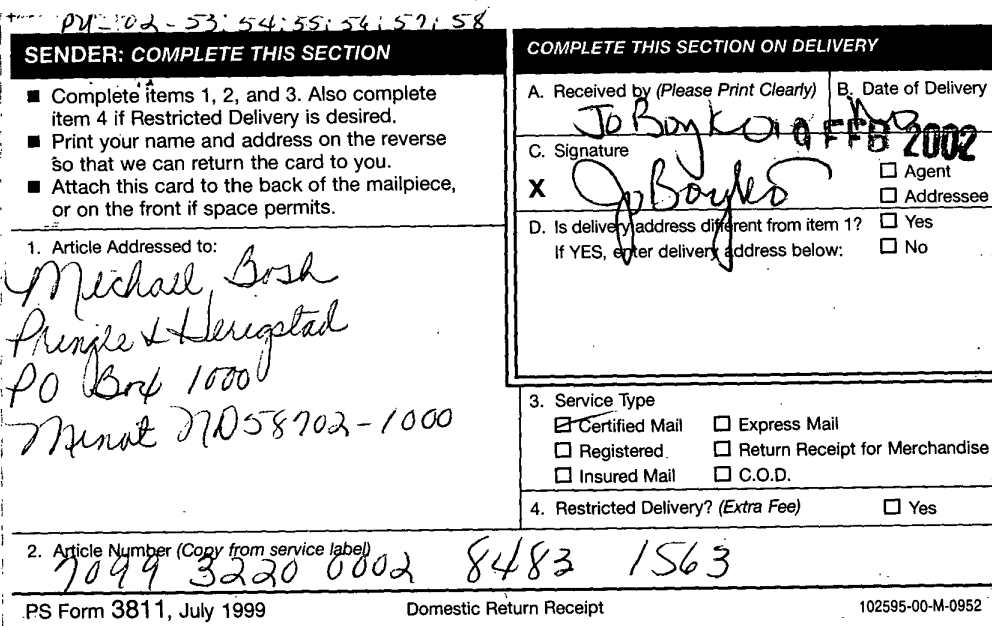 PU-02-53; 54; 55; 56; 57; 58
SENDER: COMPLETE THIS SECTION
■ Complete items 1, 2, and 3. Also complete
item 4 if Restricted Delivery is desired.
■ Print your name and address on the reverse
so that we can return the card to you.
■ Attach this card to the back of the mailpiece,
or on the front if space permits.
1. Article Addressed to:
Michael Bosh
Pringle & Herigstad
PO Box 1000
Minot ND 58702-1000
2. Article Number (Copy from service label)
7099 3220 0002 8483 1563
COMPLETE THIS SECTION ON DELIVERY
A. Received by (Please Print Clearly)
Jo Boyko
B. Date of Delivery
FEB 2002
C. Signature
X Jo Boyko
☐ Agent
☐ Addressee
D. Is delivery address different from item 1? ☐ Yes
If YES, enter delivery address below: ☐ No
3. Service Type
☑ Certified Mail ☐ Express Mail
☐ Registered ☐ Return Receipt for Merchandise
☐ Insured Mail ☐ C.O.D.
4. Restricted Delivery? (Extra Fee) ☐ Yes
PS Form 3811, July 1999 Domestic Return Receipt 102595-00-M-0952